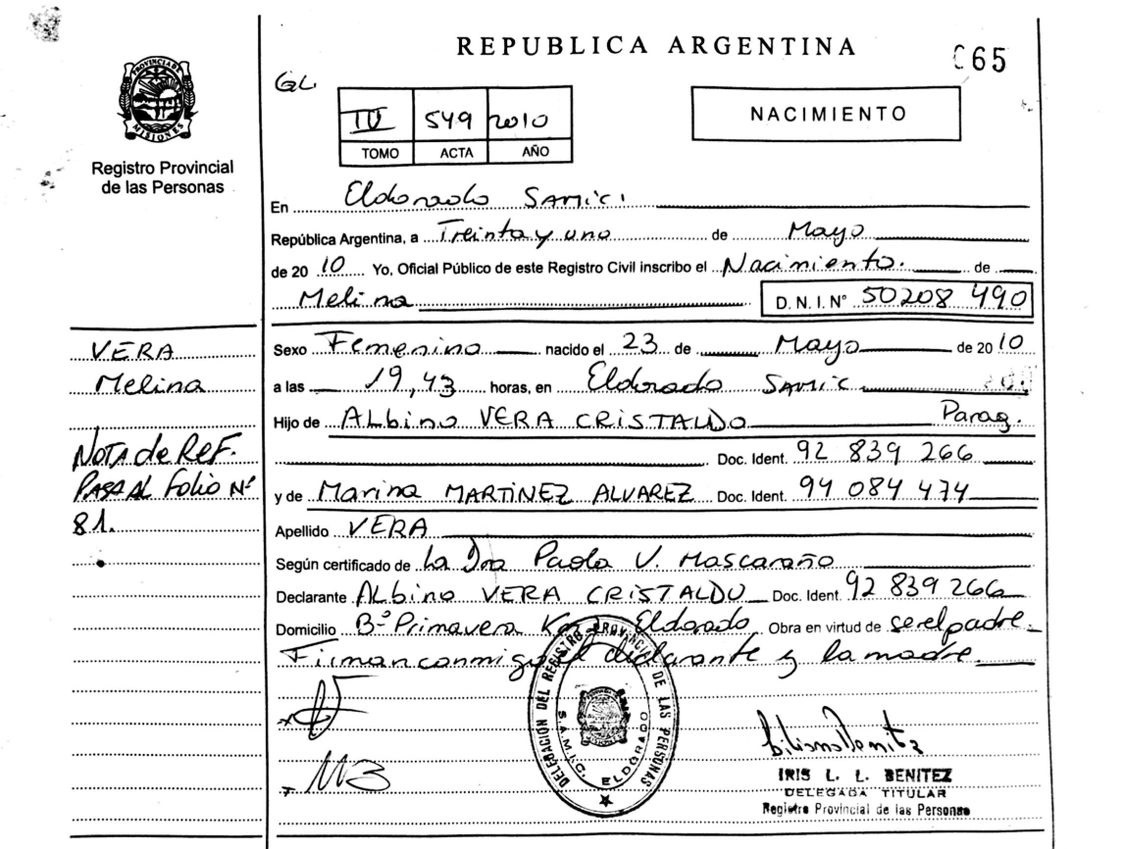 REPUBLICA ARGENTINA
65
PROVINCIA DE MISIONES
Registro Provincial
de las Personas
GL
IV 549 2010
TOMO ACTA AÑO
NACIMIENTO
En Eldorado SAMIC
República Argentina, a Treinta y uno de Mayo
de 2010 Yo, Oficial Público de este Registro Civil inscribo el Nacimiento. de
Melina D.N.I.Nº 50208 490
VERA
Melina
NOTA de REF.
PASA AL Folio Nº
81.
Sexo Femenino nacido el 23 de Mayo de 2010
a las 19,43 horas, en Eldorado SAMIC
Hijo de ALbino VERA CRISTALDO Parag.
Doc. Ident. 92 839 266
y de Marina MARTINEZ ALVAREZ Doc. Ident. 94 084 474
Apellido VERA
Según certificado de La Dra Paola V. Mascaraño
Declarante ALbino VERA CRISTALDO Doc. Ident. 92 839 266
Domicilio Bº Primavera Eldorado Obra en virtud de ser el padre.
Firman conmigo el declarante y la madre.
DELEGACIÓN DEL REGISTRO PROVINCIAL DE LAS PERSONAS
S.A.M.I.C. ELDORADO
IRIS L. L. BENITEZ
DELEGADA TITULAR
Registro Provincial de las Personas